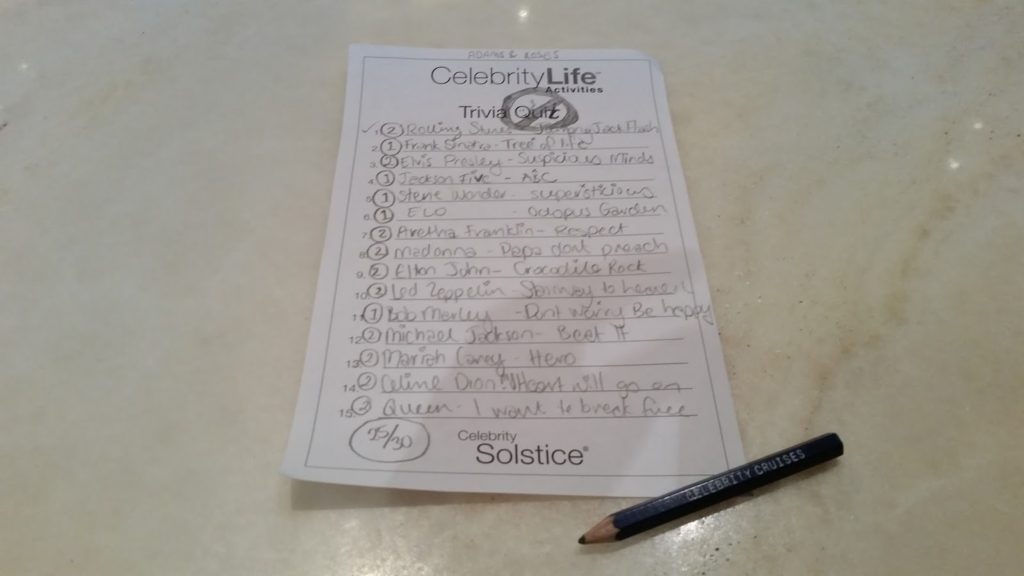 ADAMS & ROSES
CelebrityLife
Activities
Trivia Quiz
✓ 1. 2 Rolling Stones - Jumping Jack Flash
2. 1 Frank Sinatra - Tree of life
3. 2 Elvis Presley - Suspicious Minds
4. 1 Jackson Five - ABC
5. 1 Stevie Wonder - supersticious
6. 1 ELO - Octopus Garden
7. 2 Aretha Franklin - Respect
8. 2 Madonna - Papa dont preach
9. 2 Elton John - Crocodile Rock
10. 2 Led Zeppelin - Stairway to heaven
11. 1 Bob Marley - Dont worry Be happy
12. 2 Michael Jackson - Beat It
13. 2 Mariah Carey - Hero
14. 2 Celine Dion - Heart will go on
15. 2 Queen - I want to break free
25/30
Celebrity
Solstice®
CELEBRITY CRUISES